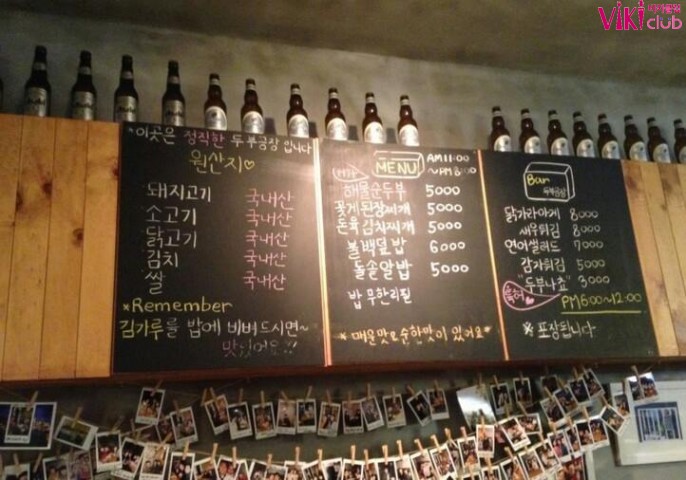 ViKi club
*이곳은 정직한 두부공장 입니다
원산지♡
돼지고기 국내산
소고기 국내산
닭고기 국내산
김치 국내산
쌀 국내산
*Remember
김가루를 밥에 비벼드시면~
맛있어요!!
MENU AM 11:00
~PM 8:00
해물순두부 5000
꽃게된장찌개 5000
돈육김치찌개 5000
불백덮밥 6000
돌솥알밥 5000
밥 무한리필
*매운맛과 순한맛이 있어요*
Bar
두부공장
닭가라아게 8000
새우튀김 8000
연어샐러드 7000
감자튀김 5000
"두부나쵸" 3000
PM6:00~12:00
※ 포장됩니다
ViKi club